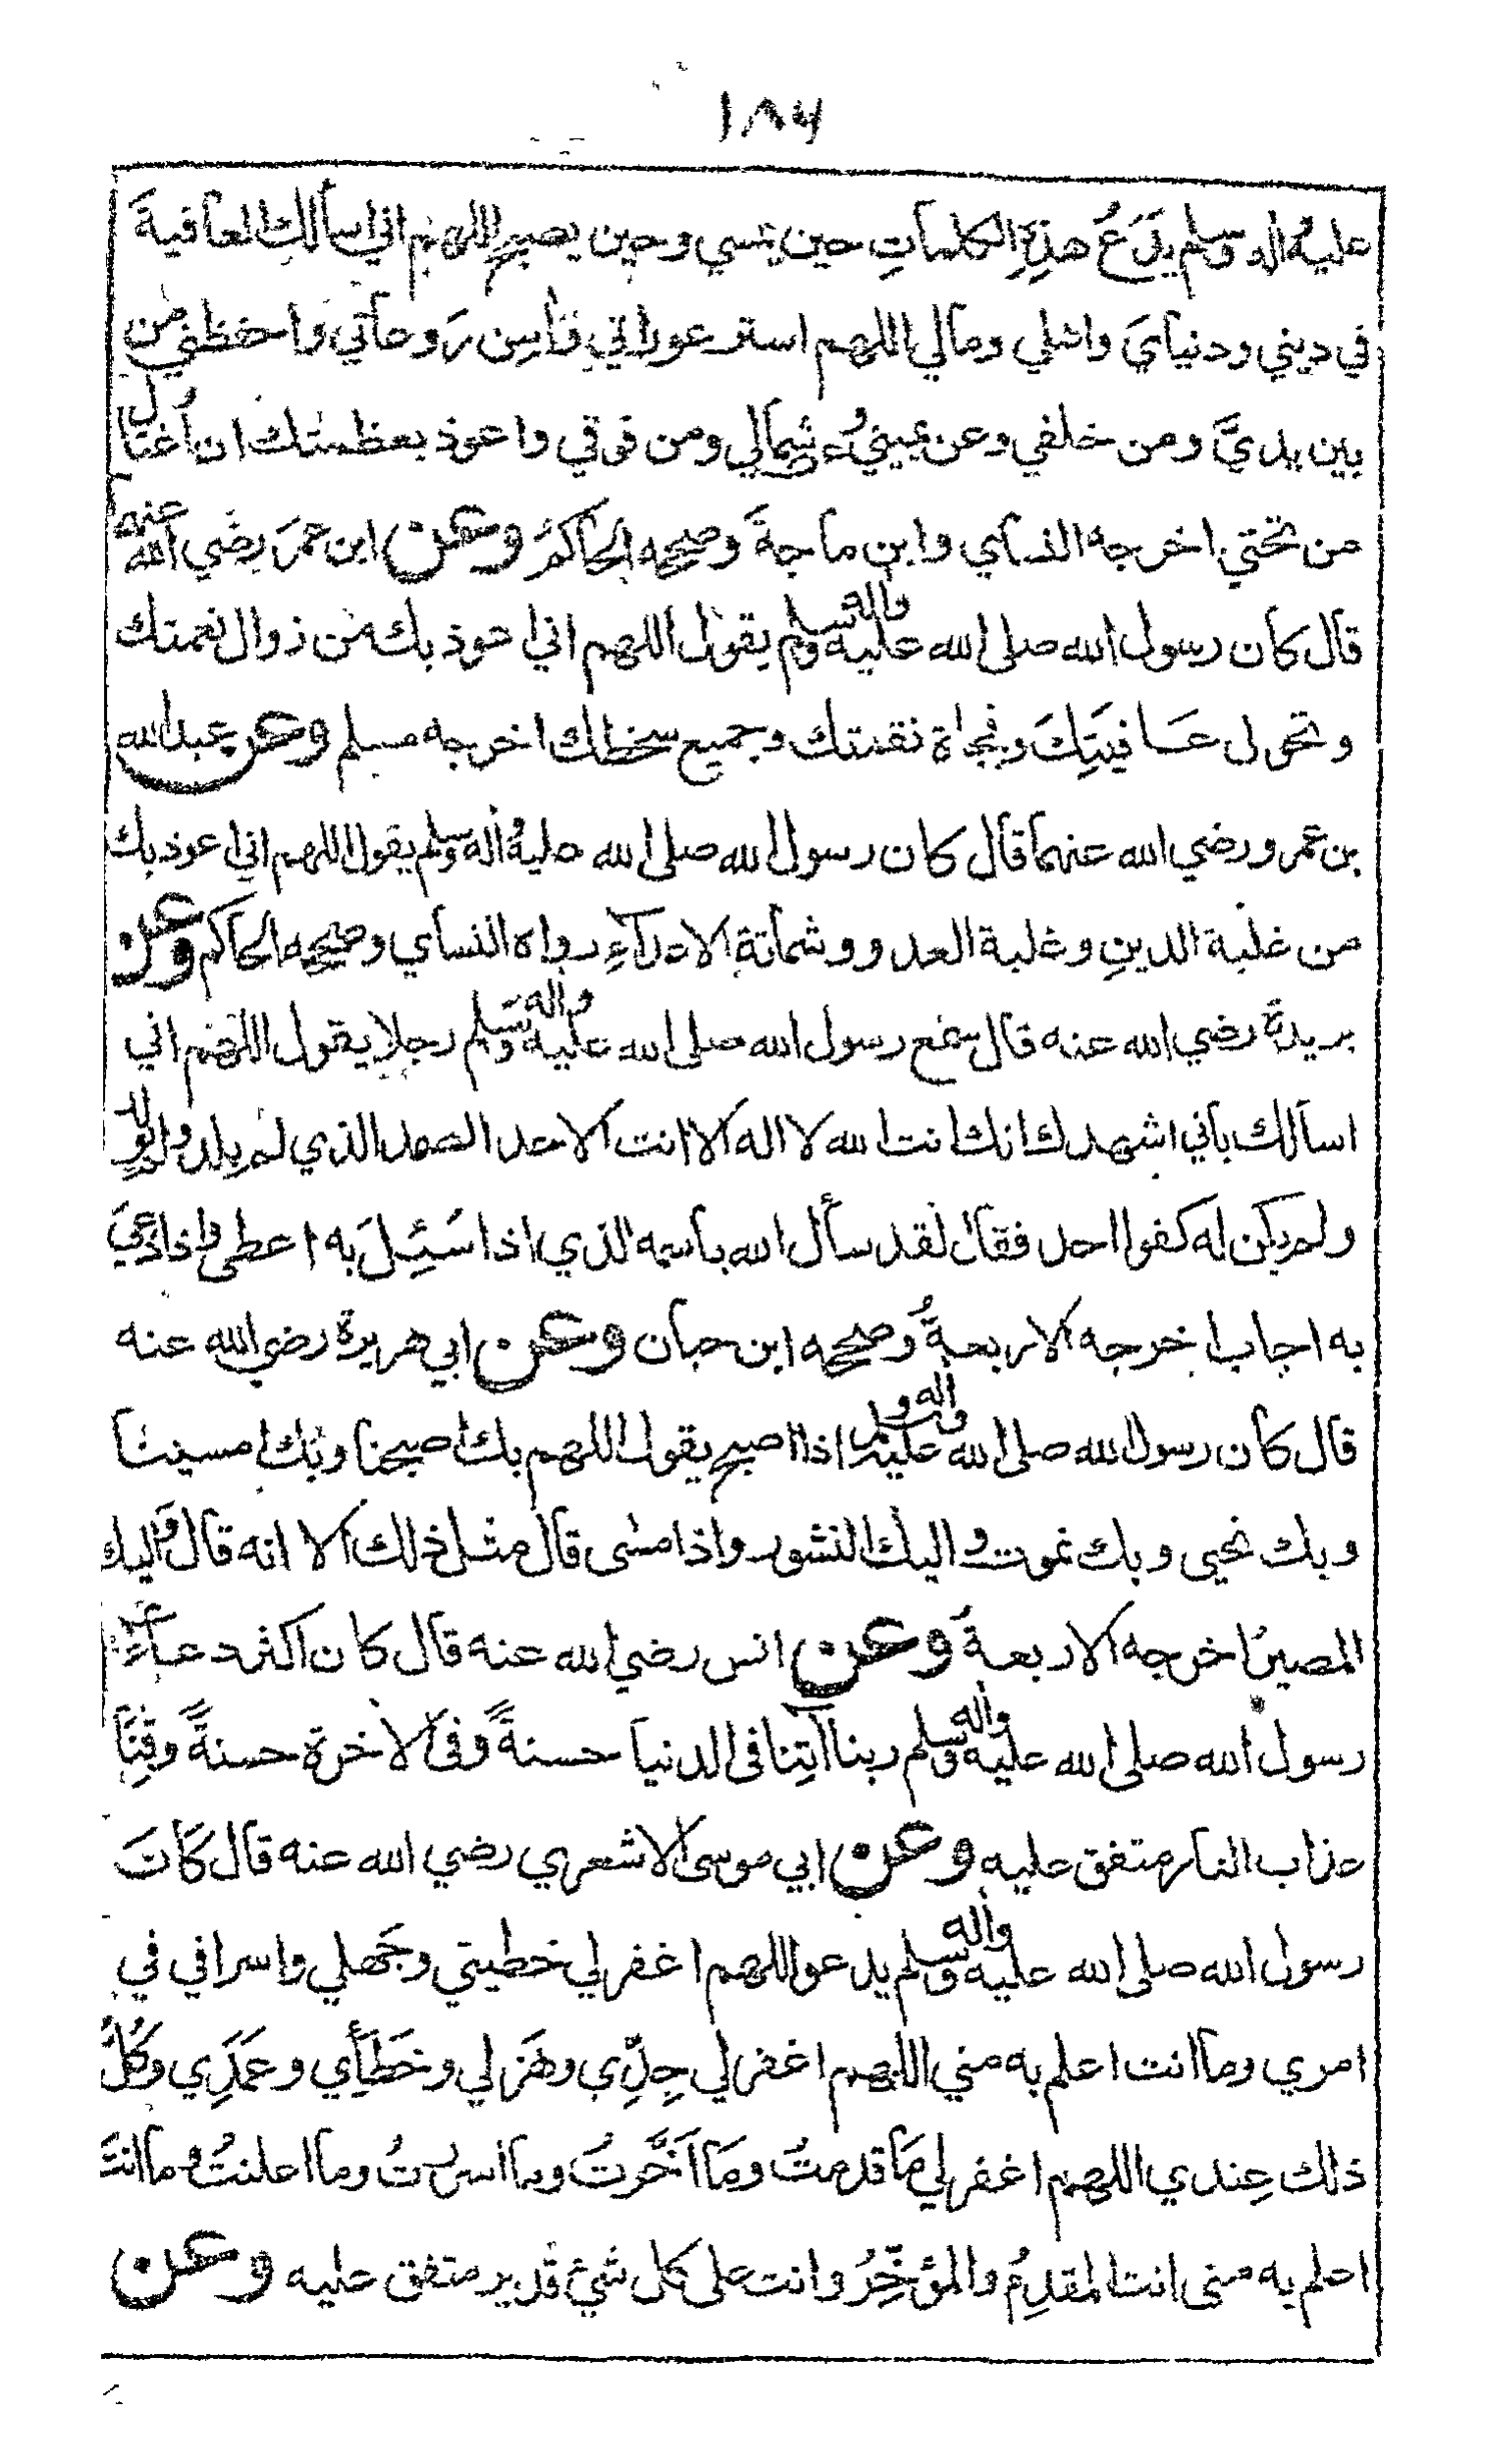 ١٨٦
عليه واله وسلم يدَعُ هذِهِ الكلماتِ حين يمسي وحين يصبح اللهم اني اسألك العافيةَ
في ديني ودنيايَ واهلي ومالي اللهم استر عوراتي وَآمِن رَوعاتي واحفظني من
بين يديَّ ومن خلفي وعن يميني وعن شِمالي ومن فوقي واعوذ بعظمتك ان اُغتال
من تحتي اخرجه النسآي وابن ماجةَ وصححه الحاكمُ وعن ابن عمرَ رضي الله عنه
قال كان رسول الله صلى الله عليه واله وسلم يقول اللهم اني اعوذ بك من زوال نعمتك
وتحول عَافيَتِكَ وفجاة نقمتك وجميع سخطك اخرجه مسلم وعن عبد الله
بن عمرو رضي الله عنهما قال كان رسول الله صلى الله عليه واله وسلم يقول اللهم اني اعوذ بك
من غلبة الدينِ وغلبة العدو وشماتةِ الاعدآءِ رواه النسآي وصححه الحاكم وعن
بريدة رضي الله عنه قال سمع رسول الله صلى الله عليه واله وسلم رجلا يقول اللهم اني
اسألك بأني اشهد لك انك انت الله لا اله الا انت الاحد الصمد الذي لم يلد ولم يولد
ولم يكن له كفوا احد فقال لقد سأل الله باسمه الذي اذا سُئِلَ به اعطى واذا دُعِيَ
به اجاب اخرجه الاربعةُ وصححه ابن حبان وعن ابي هريرة رضي الله عنه
قال كان رسول الله صلى الله عليه واله وسلم اذا اصبح يقول اللهم بك اصبحنا وبك امسينا
وبك نحيى وبك نموت واليك النشور واذا امسى قال مثل ذلك الا انه قال واليك
المصيرُ اخرجه الاربعةُ وعن انس رضي الله عنه قال كان اكثر دعآءِ
رسول الله صلى الله عليه واله وسلم ربنا آتِنا في الدنيا حسنةً وفي الاخرة حسنةً وقِنَا
عذاب النار متفق عليه وعن ابي موسى الاشعري رضي الله عنه قال كَانَ
رسول الله صلى الله عليه واله وسلم يدعو اللهم اغفر لي خطيتي وجَهلي واسرافي في
امري وما انت اعلم به مني اللهم اغفر لي جِدِّي وهَزلي وخَطَأي وعَمَدِي وَكُلُّ
ذلك عِندي اللهم اغفر لي مَا قدمتُ ومَا اَخَّرتُ وما اسررتُ وما اعلنتُ وما انتَ
اعلم به منى انت المقدِمُ والمؤخِّرُ وانت على كل شئ قدير متفق عليه وعن